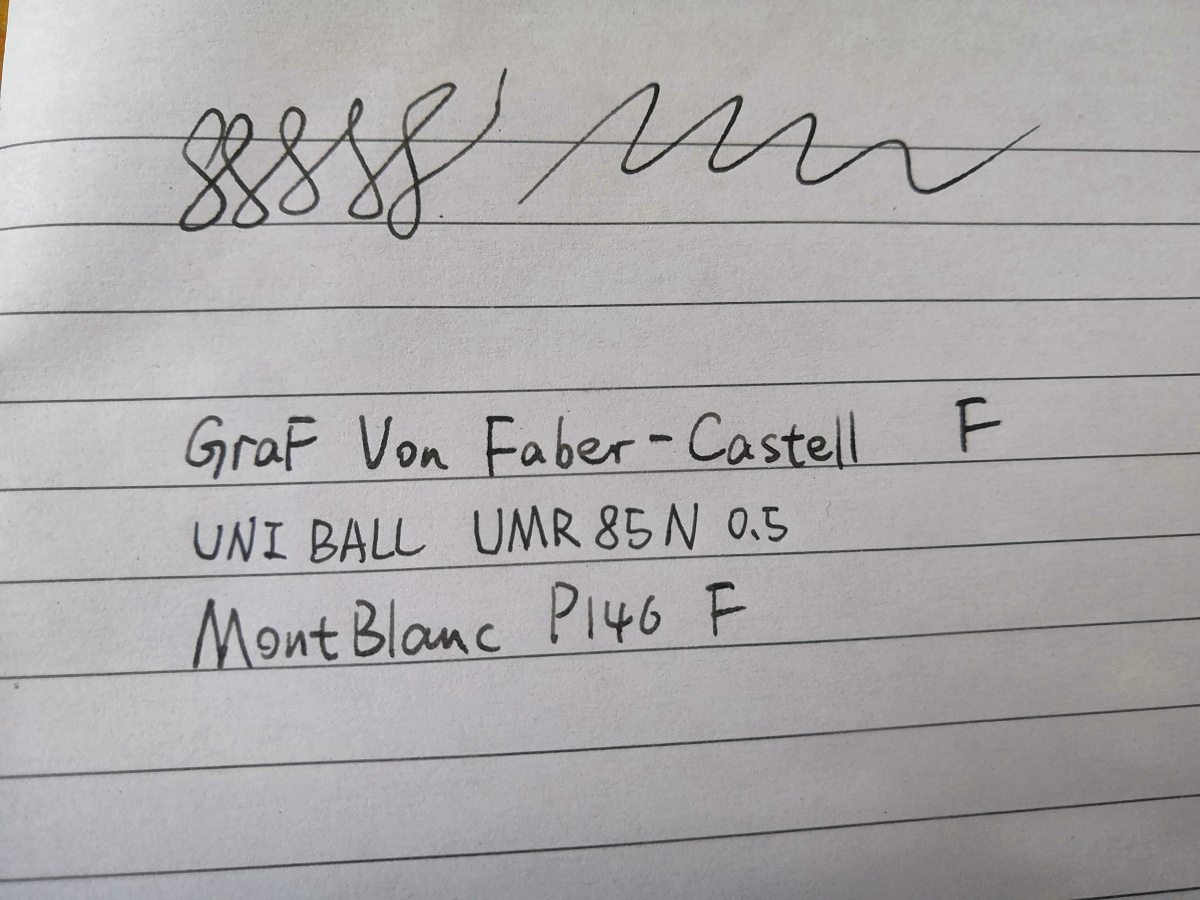 GraF Von Faber-Castell F
UNI BALL UMR 85 N 0.5
MontBlanc P146 F